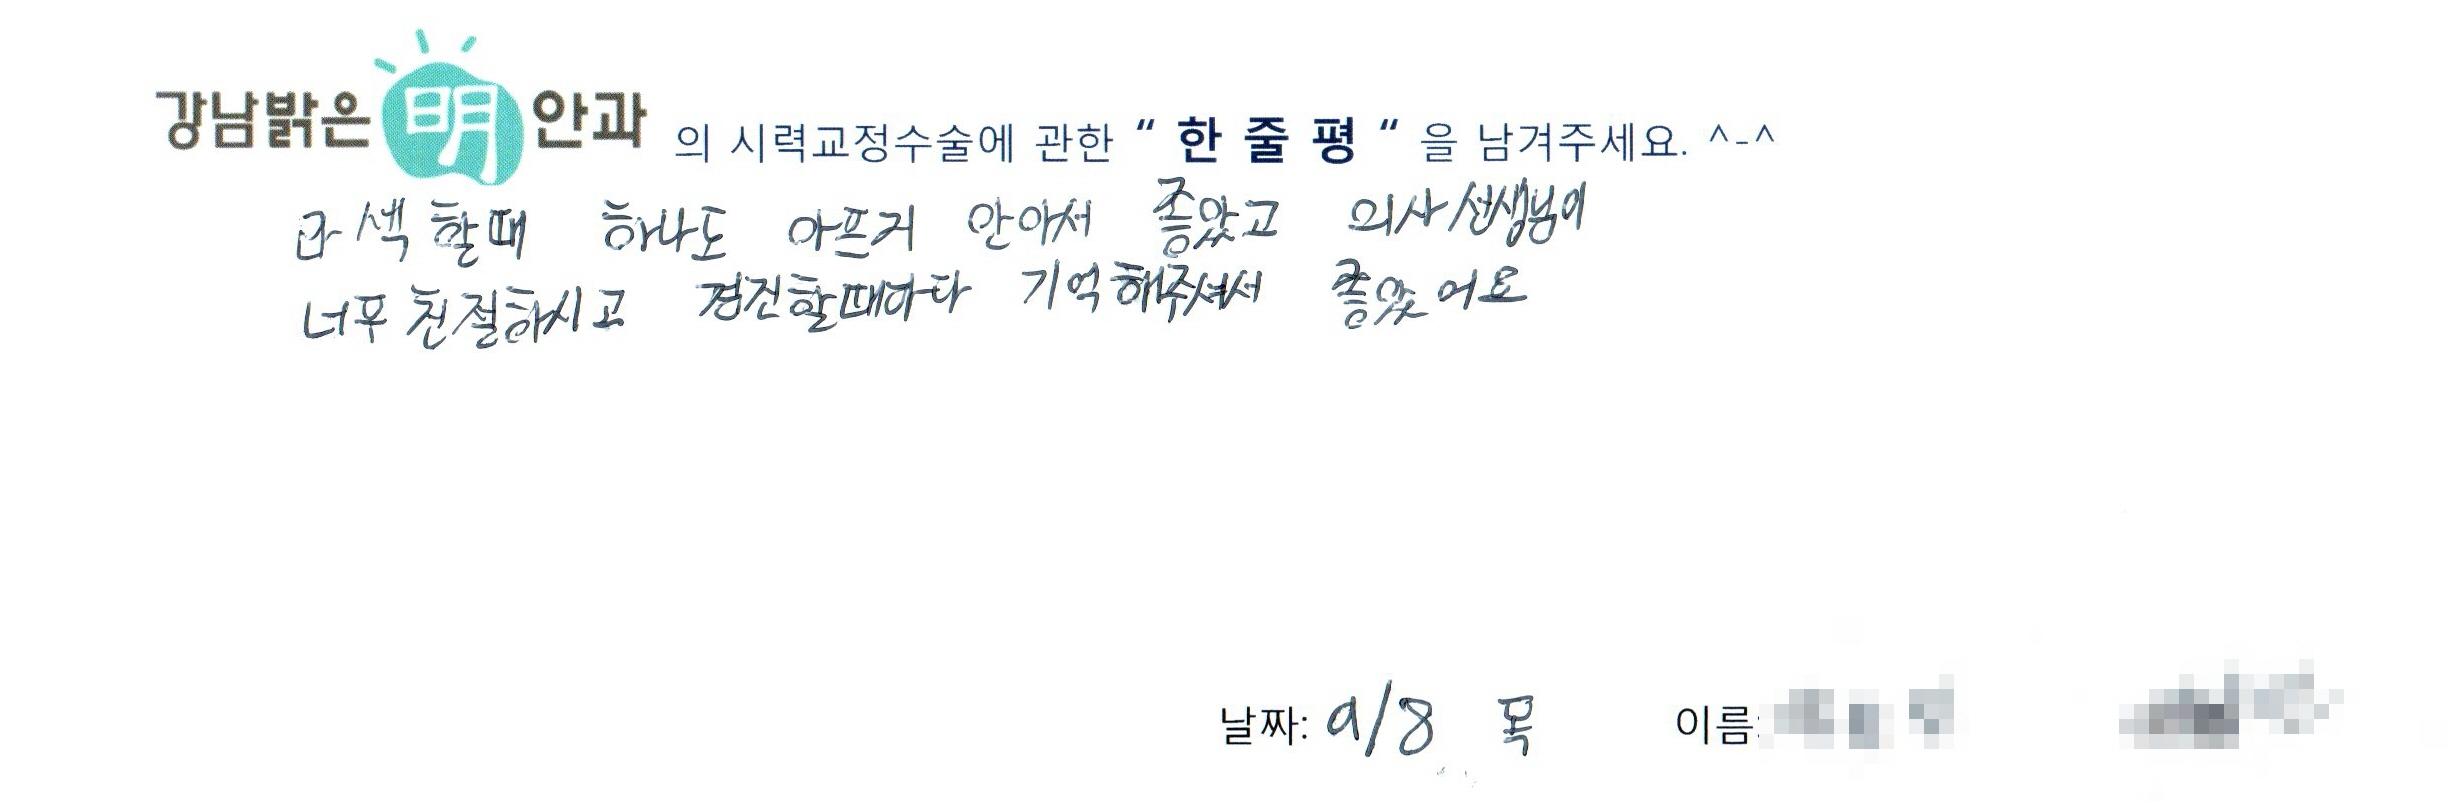 강남밝은明안과 의 시력교정수술에 관한 “ 한 줄 평 “ 을 남겨주세요. ^-^
라섹할때 하나도 아프거 안아서 좋았고 의사선생님이
너무 친절하시고 검진할때마다 기억해주셔서 좋았어요
날짜: 9/8 목 이름: